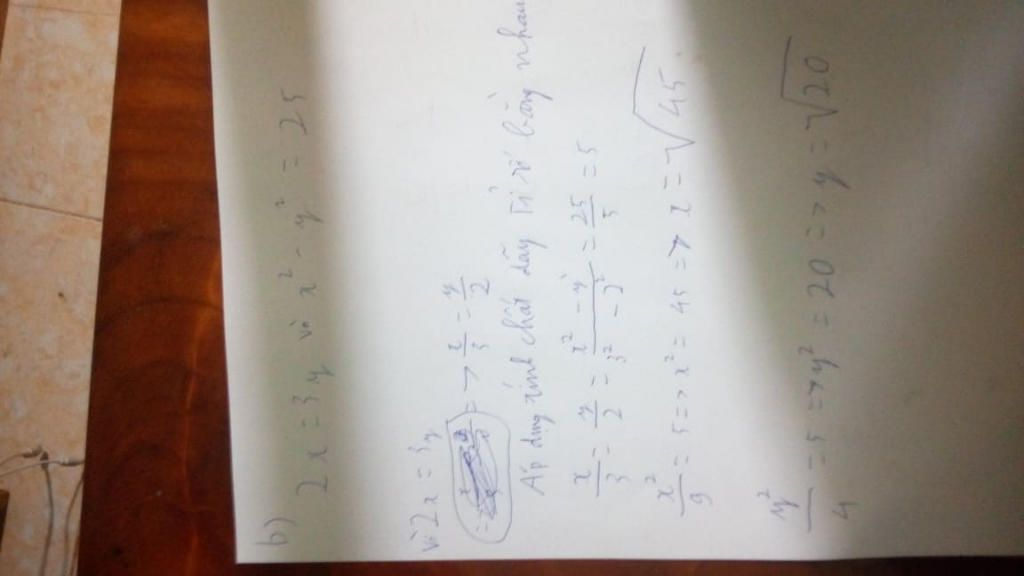 b)
2x = 3y và x² - y² = 25
vì 2x = 3y
=> x/3 = y/2
Áp dụng tính chất dãy tỉ số bằng nhau
x/3 = y/2 = (x² - y²)/(3² - 2²) = 25/5 = 5
x²/9 = 5 => x² = 45 => x = √45
y²/4 = 5 => y² = 20 => y = √20